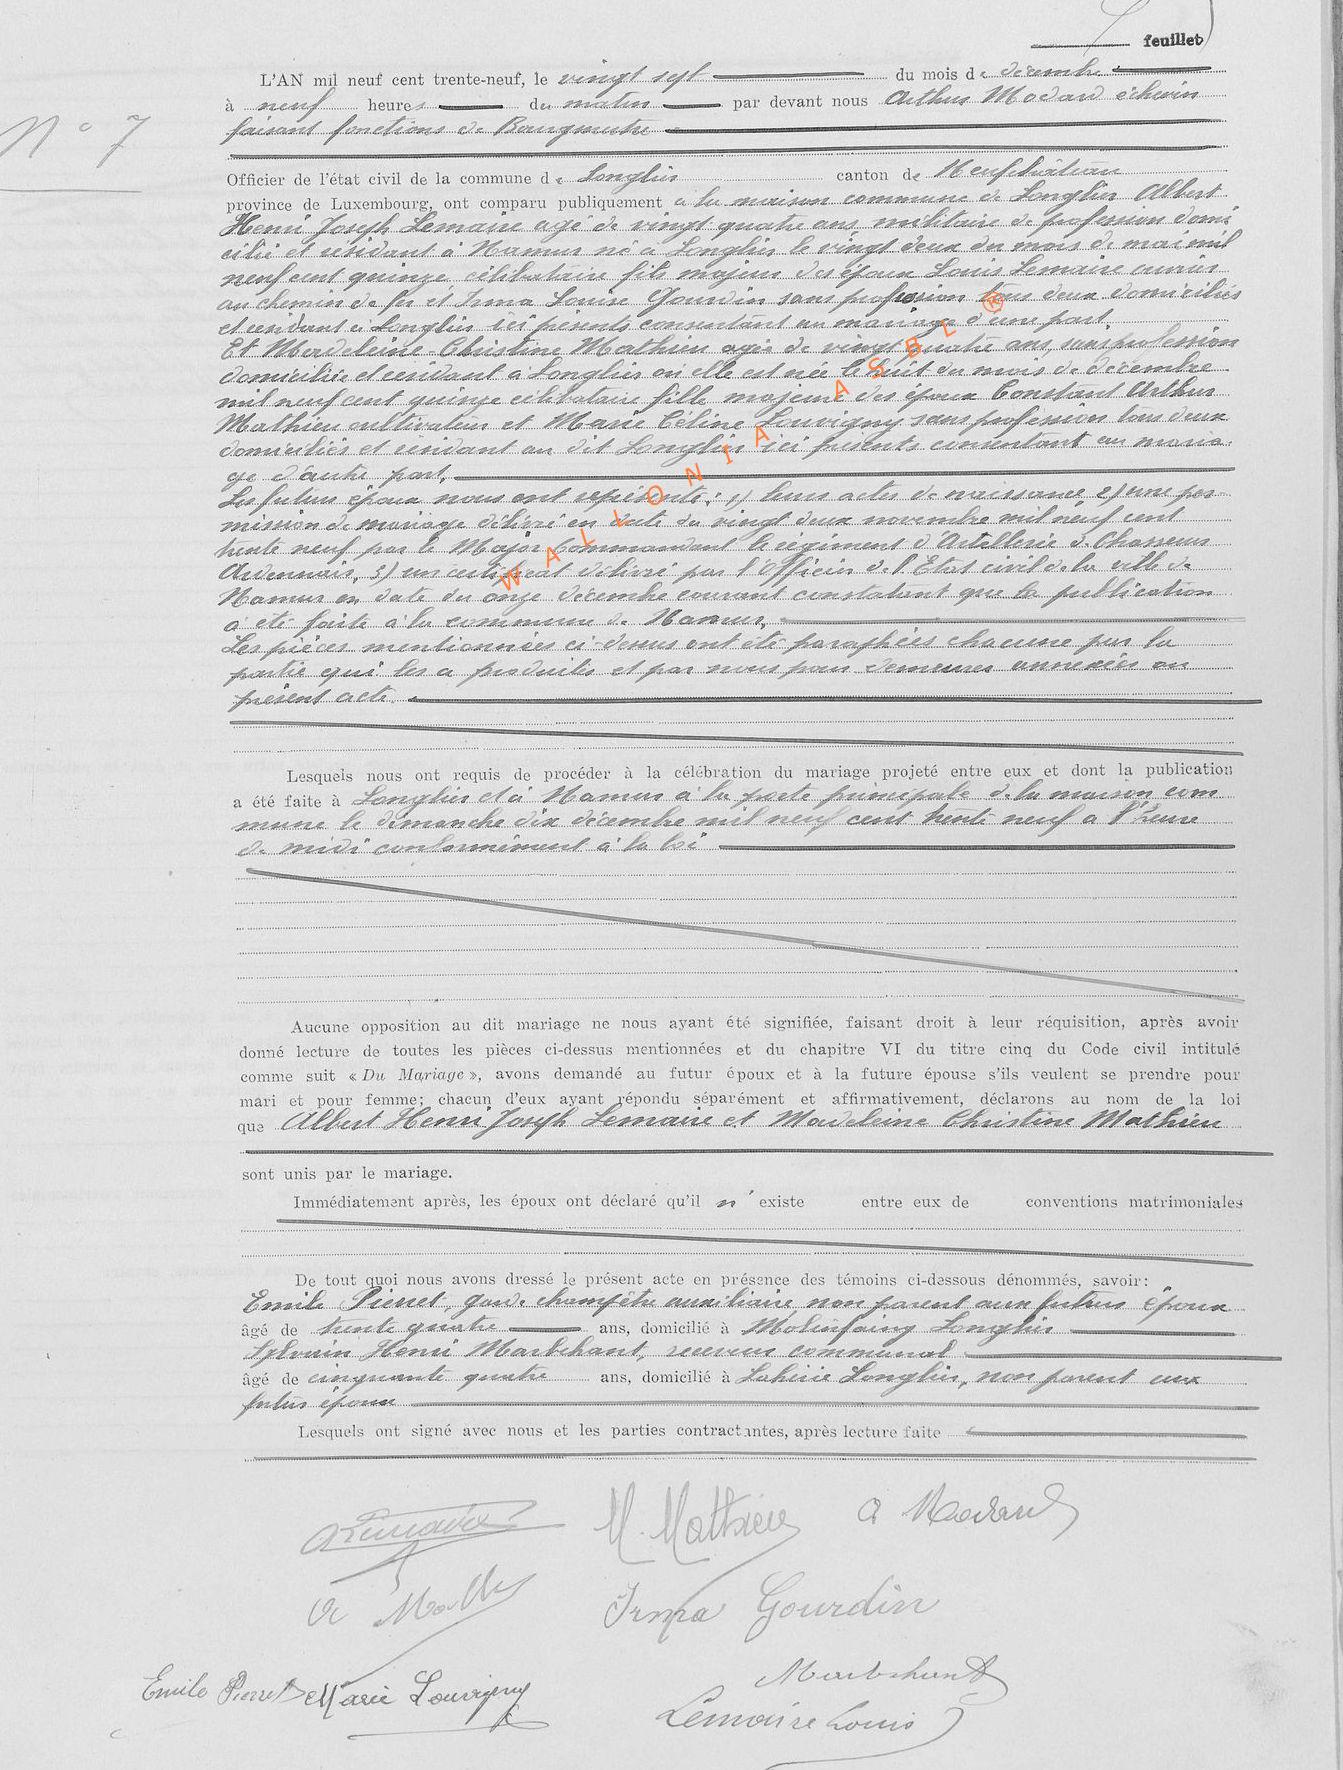 7 feuillet
L'AN mil neuf cent trente-neuf, le vingt sept du mois de décembre
à neuf heures du matin par devant nous Arthur Modard échevin
N° 7
faisant fonctions de Bourgmestre
Officier de l'état civil de la commune de Longlier canton de Neufchâteau
province de Luxembourg, ont comparu publiquement à la maison commune de Longlier Albert
Henri Joseph Lemaire agé de vingt quatre ans, militaire de profession domi
cilié et résidant à Namur né à Longlier le vingt deux du mois de mai mil
neuf cent quinze célibataire fils majeur des époux Louis Lemaire ouvrier
au chemin de fer et Irma Louise Gourdin sans profession tous deux domiciliés
et résidant à Longlier ici présents consentant au mariage d'une part.
Et Madeleine Christine Mathieu agée de vingt quatre ans, sans profession
domiciliée et résidant à Longlier où elle est née le huit du mois de décembre
mil neuf cent quinze célibataire fille majeure des époux Constant Arthur
Mathieu cultivateur et Marie Céline Louvigny sans profession tous deux
domiciliés et résidant au dit Longlier ici présents consentant au maria
ge d'autre part.
Les futurs époux nous ont représenté: 1) leurs actes de naissance 2) une per
mission de mariage délivré en date du vingt deux novembre mil neuf cent
trente neuf par le Major Commandant le régiment d'Artillerie d. Chasseurs
Ardennais, 3) un certificat délivré par l'Officier de l'Etat civil de la ville de
Namur en date du onze décembre courant constatant que la publication
a été faite à la commune de Namur.
Les pièces mentionnées ci-dessus ont été paraphées chacune par la
partie qui les a produites et par nous pour demeurer annexées au
présent acte.
WALLONIA ASBL ®
Lesquels nous ont requis de procéder à la célébration du mariage projeté entre eux et dont la publication
a été faite à Longlier et à Namur à la porte principale de la maison com
mune le dimanche dix décembre mil neuf cent trente neuf à l'heure
de midi conformément à la loi
Aucune opposition au dit mariage ne nous ayant été signifiée, faisant droit à leur réquisition, après avoir
donné lecture de toutes les pièces ci-dessus mentionnées et du chapitre VI du titre cinq du Code civil intitulé
comme suit « Du Mariage », avons demandé au futur époux et à la future épouse s'ils veulent se prendre pour
mari et pour femme; chacun d'eux ayant répondu séparément et affirmativement, déclarons au nom de la loi
que Albert Henri Joseph Lemaire et Madeleine Christine Mathieu
sont unis par le mariage.
Immédiatement après, les époux ont déclaré qu'il n' existe entre eux de conventions matrimoniales
De tout quoi nous avons dressé le présent acte en présence des témoins ci-dessous dénommés, savoir:
Emile Pierret, garde champêtre auxiliaire, non parent aux futurs époux
âgé de trente quatre ans, domicilié à Molinfaing Longlier
Sylvain Henri Marbehant, receveur communal
âgé de cinquante quatre ans, domicilié à Lahérie Longlier, non parent aux
futurs époux
Lesquels ont signé avec nous et les parties contractantes, après lecture faite
ALemaire M. Mathieu A Modard
Irma Gourdin
Emile Pierret Marie Louvigny Marbehant
Lemaire Louis